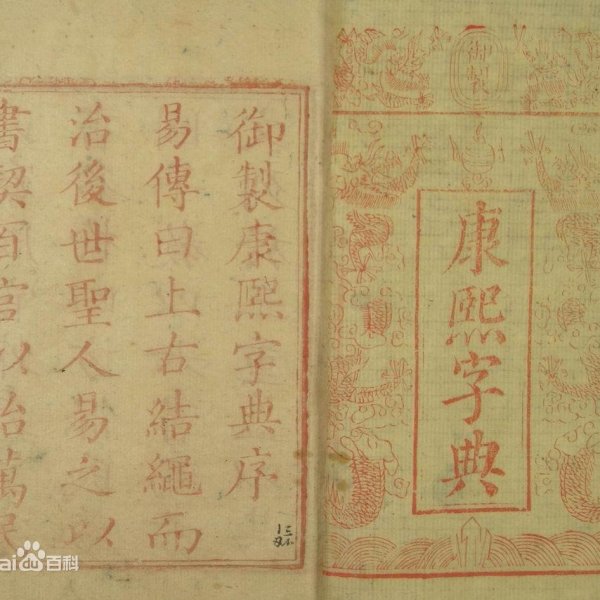 御製
康熙字典
御製康熙字典序
易傳曰上古結繩而
治後世聖人易之以
書契百官以治萬民
Bai百科